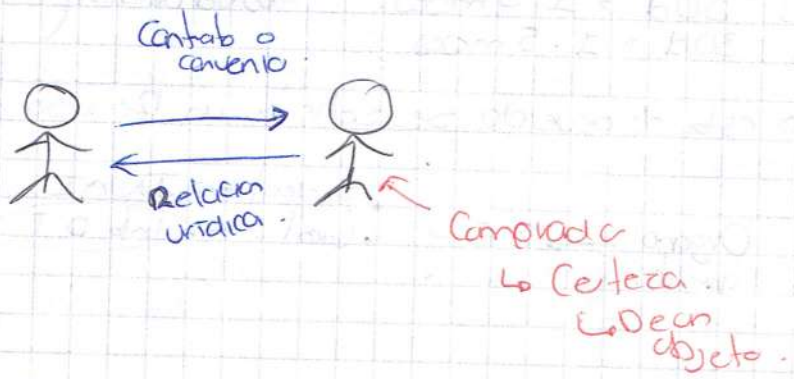 Contrato o
convenio.
Relación
urídica.
Comprador
↳ Certeza.
↳ De un
objeto.